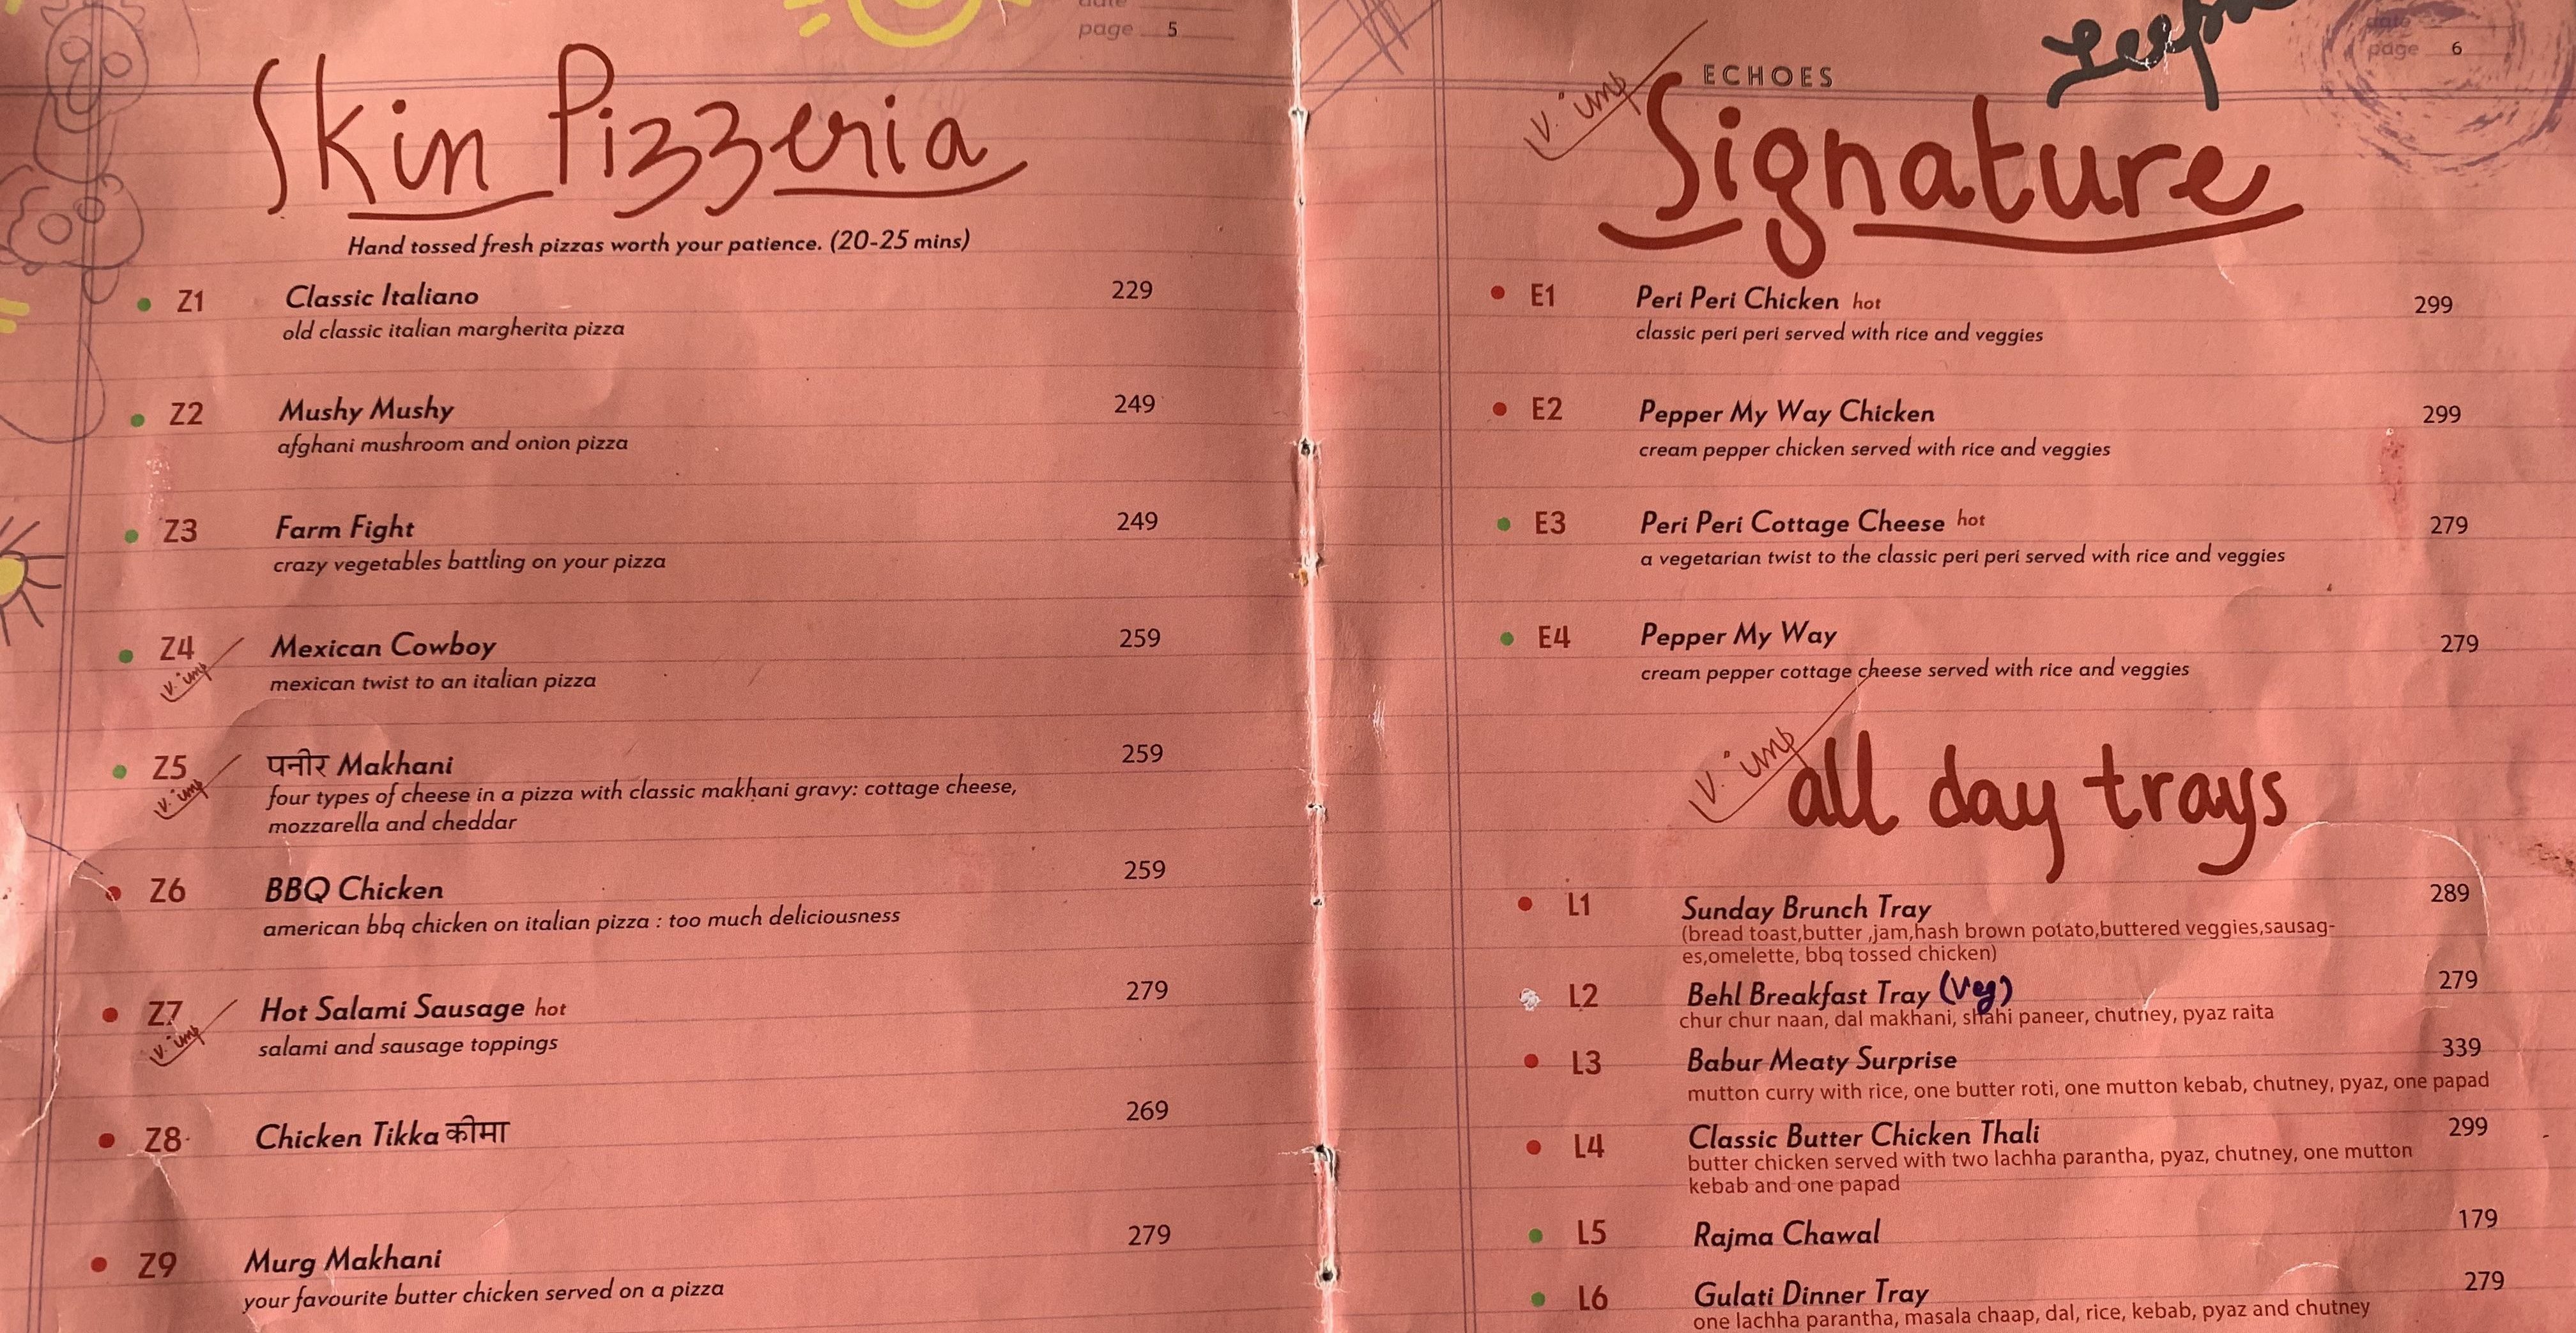 date
page 5
Skin Pizzeria
Hand tossed fresh pizzas worth your patience. (20-25 mins)
Z1 Classic Italiano 229
old classic italian margherita pizza
Z2 Mushy Mushy 249
afghani mushroom and onion pizza
Z3 Farm Fight 249
crazy vegetables battling on your pizza
Z4 Mexican Cowboy 259
v. imp
mexican twist to an italian pizza
Z5 पनीर Makhani 259
v. imp
four types of cheese in a pizza with classic makhani gravy: cottage cheese,
mozzarella and cheddar
Z6 BBQ Chicken 259
american bbq chicken on italian pizza : too much deliciousness
Z7 Hot Salami Sausage hot 279
v. imp
salami and sausage toppings
Z8 Chicken Tikka कीमा 269
Z9 Murg Makhani 279
your favourite butter chicken served on a pizza
date
page 6
v. imp
ECHOES
Signature
E1 Peri Peri Chicken hot 299
classic peri peri served with rice and veggies
E2 Pepper My Way Chicken 299
cream pepper chicken served with rice and veggies
E3 Peri Peri Cottage Cheese hot 279
a vegetarian twist to the classic peri peri served with rice and veggies
E4 Pepper My Way 279
cream pepper cottage cheese served with rice and veggies
v. imp
all day trays
L1 Sunday Brunch Tray 289
(bread toast,butter ,jam,hash brown potato,buttered veggies,sausag-
es,omelette, bbq tossed chicken)
L2 Behl Breakfast Tray (Veg) 279
chur chur naan, dal makhani, shahi paneer, chutney, pyaz raita
L3 Babur Meaty Surprise 339
mutton curry with rice, one butter roti, one mutton kebab, chutney, pyaz, one papad
L4 Classic Butter Chicken Thali 299
butter chicken served with two lachha parantha, pyaz, chutney, one mutton
kebab and one papad
L5 Rajma Chawal 179
L6 Gulati Dinner Tray 279
one lachha parantha, masala chaap, dal, rice, kebab, pyaz and chutney